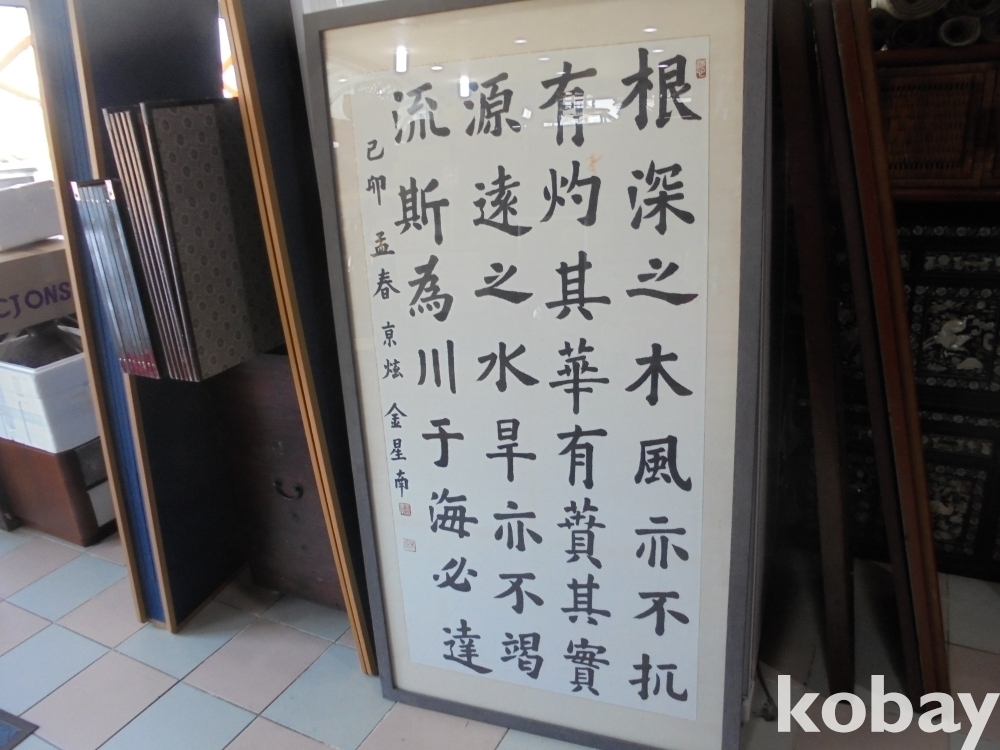 根深之木風亦不扤
有灼其華有蕡其實
源遠之水旱亦不竭
流斯為川于海必達
己卯 孟春 亰炫 金星南
CJ ONS
kobay